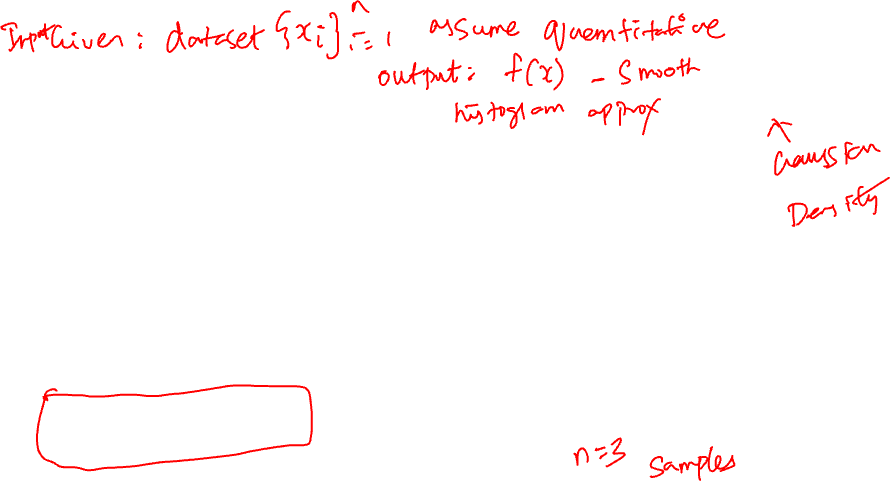 Input Given: dataset {xi}ⁿi=1 assume quantitative
output: f(x) - Smooth
histogram approx
Gaussian
Density
n=3 samples